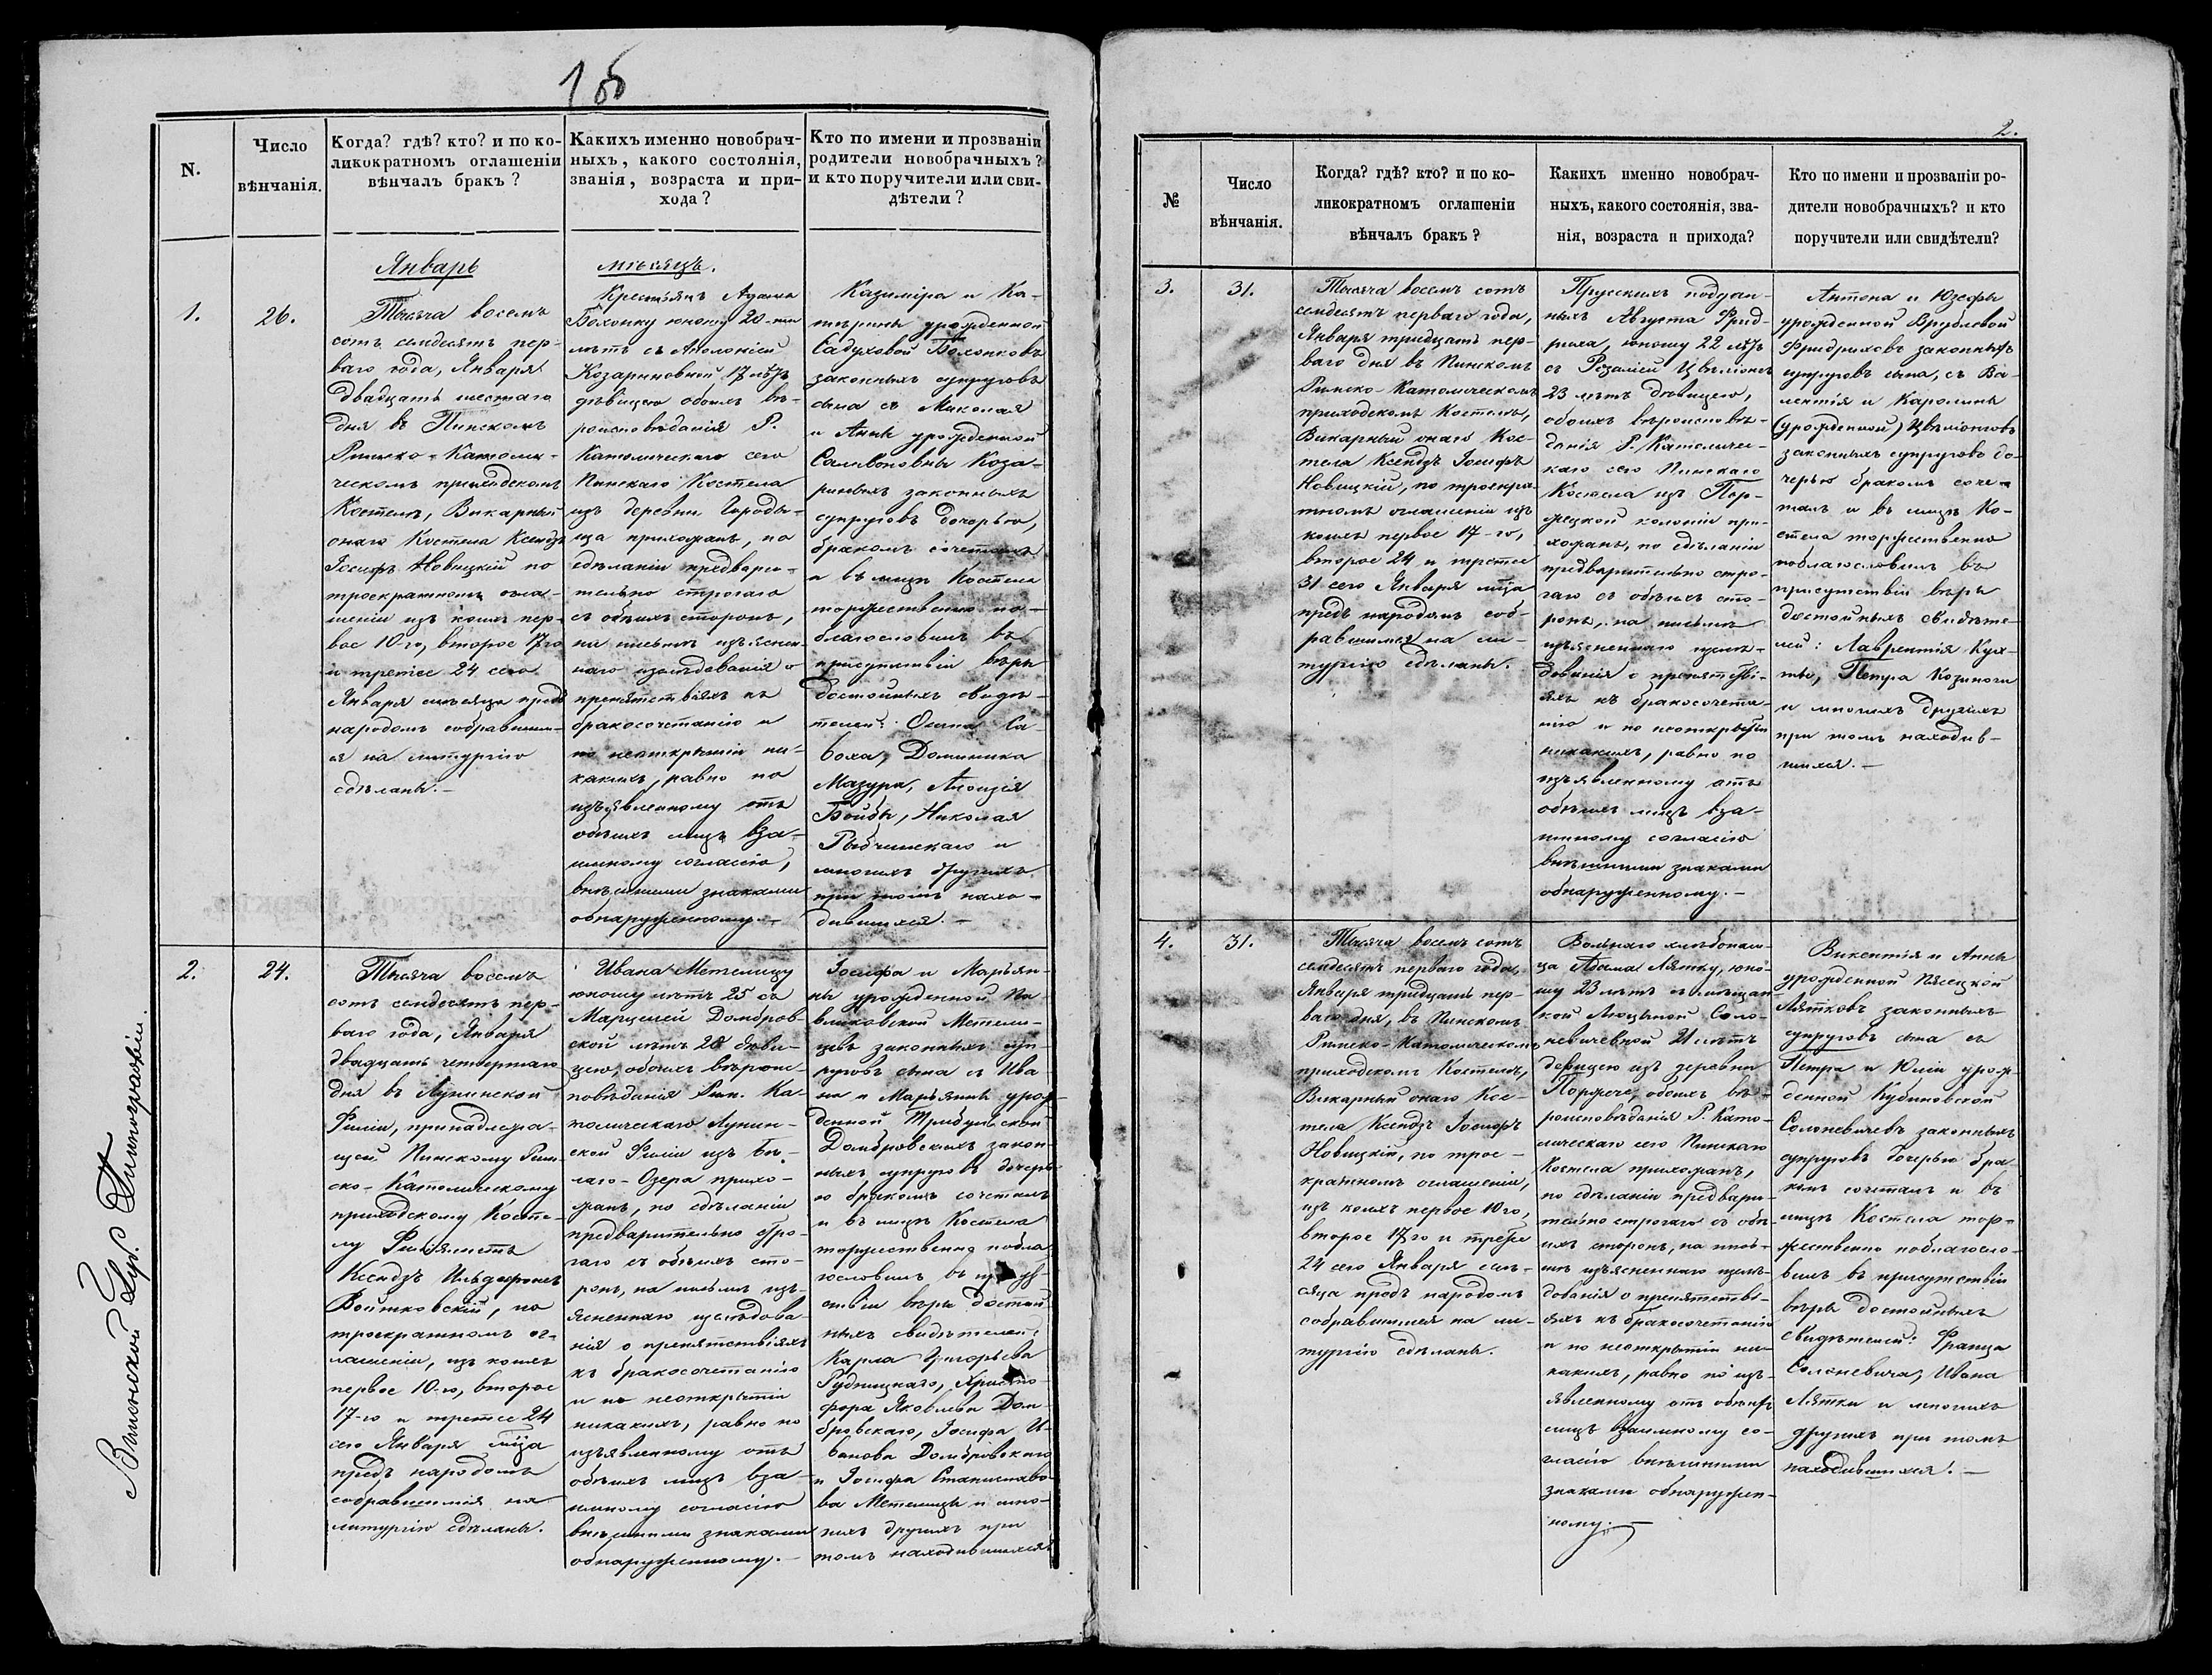 1об
N.
Число
вѣнчанія.
Когда? гдѣ? кто? и по ко-
ликократномъ оглашеніи
вѣнчалъ бракъ?
Какихъ именно новобрач-
ныхъ, какого состоянія,
званія, возраста и при-
хода?
Кто по имени и прозванію
родители новобрачныхъ?
и кто поручители или сви-
дѣтели?
Январь
мѣсяцъ.
1.
26.
Тысяча восемь
сотъ семдесятъ пер-
ваго года, Января
двадцать шестаго
дня въ Пинскомъ
Римско-Католи-
ческомъ приходскомъ
Костелѣ, Викарный
онаго Костела Ксендзъ
Іосифъ Новицкій по
троекратномъ огла-
шеніи изъ коихъ пер-
вое 10-го, второе 17го
и третее 24 сего
Января мѣсяца предъ
народомъ собравшим-
ся на литургію
сдѣланы.-
Крестьянъ Адама
Бохонку юношу 20-ти
лѣтъ съ Аполоніею
Козариновной 17 лѣтъ
дѣвицею обоихъ вѣ-
роисповѣданія Р.
Католическаго сего
Пинскаго Костела
изъ деревни Городи-
ща прихожанъ, по
сдѣланіи предвари-
тельно строгаго
съ обѣихъ сторонъ,
на письмѣ изъяснен-
наго изслѣдованія о
препятствіяхъ къ
бракосочетанію и
по неоткрытіи ни-
какихъ, равно по
изъявленному отъ
обѣихъ лицъ вза-
имному согласію,
внѣшними знаками
обнаруженному.-
Казиміра и Ка-
терины урожденной
Садуховой Бохонковъ
законныхъ супруговъ
сына съ Миколая
и Анны урожденной
Саливоновны Коза-
риныхъ законныхъ
супруговъ дочерью,
бракомъ сочеталъ
и въ лицѣ Костела
торжественно по-
благословилъ въ
присутствіи вѣры
достойныхъ свидѣ-
телей: Осипа Са-
боха, Доминика
Мазура, Алоизія
Бойбы, Николая
Рыбчинскаго и
многихъ другихъ
при томъ нахо-
дившихся.-
2.
24.
Тысяча восемь
сотъ семдесятъ пер-
ваго года, Января
двадцать четвертаго
дня въ Лунинской
Филіи, принадлежа-
щей Пинскому Рим-
ско-Католическому
приходскому Косте-
лу Филіялистъ
Ксендзъ Ильдефонсъ
Войтковскій, по
троекратномъ ог-
лашеніи, изъ коихъ
первое 10-го, второе
17-го и третее 24
сего Января м͠ца
предъ народомъ
собравшимся на
литургію сдѣланы.
Ивана Метелицу
юношу лѣтъ 25 съ
Марцелей Домбров-
ской лѣтъ 28 дѣви-
цею, обоихъ вѣроис-
повѣданія Рим. Ка-
толическаго Лунин-
ской Филіи изъ Бѣ-
лаго-Озера прихо-
жанъ, по сдѣланіи
предварительно стро-
гаго съ обѣихъ сто-
ронъ, на письмѣ изъ-
ясненнаго изслѣдова-
нія о препятствіяхъ
къ бракосочетанію
и по неоткрытіи
никакихъ, равно по
изъявленному отъ
обѣихъ лицъ вза-
имному согласію
внѣшними знаками
обнаруженному.-
Іосифа и Марьян-
ны урожденной Па-
влиховской Метели-
цевъ законныхъ суп-
руговъ сына съ Ива-
на и Марьянны урож-
денной
Домбровскихъ закон-
ныхъ супруговъ дочерь-
ю бракомъ сочеталъ
и въ лицѣ Костела
торжественно побла-
гословилъ въ присут-
ствіи вѣры достой-
ныхъ свидѣтелей:
Карла Григорьева
Рудницкаго, Христо-
фора Яковлева Дом-
бровскаго, Іосифа И-
ванова Домбровскаго
и Іосифа Станиславо-
ва Метелицы и мно-
гихъ другихъ при
томъ находившихся
Виленской Губ. Типографіи.
2.
№
Число
вѣнчанія.
Когда? гдѣ? кто? и по ко-
ликократномъ оглашеніи
вѣнчалъ бракъ?
Какихъ именно новобрач-
ныхъ, какого состоянія, зва-
нія, возраста и прихода?
Кто по имени и прозваніи ро-
дители новобрачныхъ? и кто
поручители или свидѣтели?
3.
31.
Тысяча восемь сотъ
семдесятъ перваго года,
Января тридцать пер-
ваго дня въ Пинскомъ
Римско-Католическомъ
приходскомъ Костелѣ,
Викарный онаго Кос-
тела Ксендзъ Іосифъ
Новицкій, по троекра-
тномъ оглашеніи изъ
коихъ первое 17-го,
второе 24 и третее
31 сего Января м͠ца
предъ народомъ соб-
равшимся на ли-
тургію сдѣланы.
Прусскихъ поддан-
ныхъ Августа Фрид-
риха, юношу 22 лѣтъ
съ Розаліей
23 лѣтъ дѣвицею,
обоихъ вѣроисповѣ-
данія Р. Католичес-
каго сего Пинскаго
Костела изъ Пор-
жецкой колоніи при-
хожанъ, по сдѣланіи
предварительно стро-
гаго съ обѣихъ сто-
ронъ, на письмѣ
изъясненнаго изслѣ-
дованія о препятстві-
яхъ къ бракосочета-
нію и по неоткрытіи
никакихъ, равно по
изъявленному отъ
обѣихъ лицъ вза-
имному согласію
внѣшними знаками
обнаруженному.-
Антона и Юзефы
урожденной Врублевой
Фридриховъ законныхъ
супруговъ сына, съ Ва-
лентія и Каролины
(урожденной)
законныхъ супруговъ до-
черью бракомъ соче-
талъ и въ лицѣ Ко-
стела торжественно
поблагословилъ въ
присутствіи вѣры
достойныхъ свидѣте-
лей: Лаврентія Кух-
ты, Петра
и многихъ другихъ
при томъ находив-
шихся.-
4.
31.
Тысяча восемь сотъ
семдесятъ перваго года,
Января тридцать пер-
ваго дня, въ Пинскомъ
Римско-Католическомъ
приходскомъ Костелѣ,
Викарный онаго Кос-
тела Ксендзъ Іосифъ
Новицкій, по трое-
кратномъ оглашеніи,
изъ коихъ первое 10го,
второе 17го и третее
24 сего Января мѣ-
сяца предъ народомъ
собравшимся на ли-
тургію сдѣланы.
Вольнаго хлѣбопаш-
ца Адама Лятку, юно-
шу 23 лѣтъ съ мѣщан-
кой Люцыной Соло-
невичевной 21 лѣтъ
дѣвицею изъ деревни
Поржече, обоихъ вѣ-
роисповѣданія Р. Като-
лическаго сего Пинскаго
Костела прихожанъ,
по сдѣланіи предвари-
тельно строгаго съ обѣ-
ихъ сторонъ, на пись-
мѣ изъясненнаго изслѣ-
дованія о препятстві-
яхъ къ бракосочетанію
и по неоткрытіи ни-
какихъ, равно по изъ-
явленному отъ обѣихъ
лицъ взаимному со-
гласію внѣшними
знаками обнаружен-
ному.-
Викентія и Анны
урожденной Пясецкой
Лятковъ законныхъ
супруговъ сына съ
Петра и Юліи урож-
денной Кубиновской
Солоневичевъ законныхъ
супруговъ дочерью бра-
комъ сочеталъ и въ
лицѣ Костела тор-
жественно поблагосло-
вилъ въ присутствіи
вѣры достойныхъ
свидѣтелей: Франца
Солоневича, Ивана
Лятки и многихъ
другихъ при томъ
находившихся.-